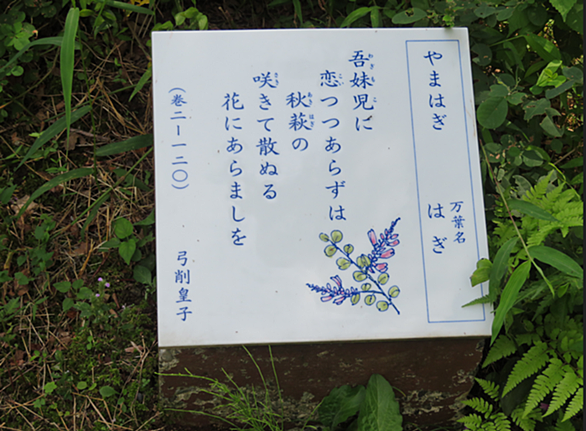 やまはぎ 万葉名 はぎ
吾妹児に
恋つつあらずは
秋萩の
咲きて散ぬる
花にあらましを
(巻二ー一二〇) 弓削皇子